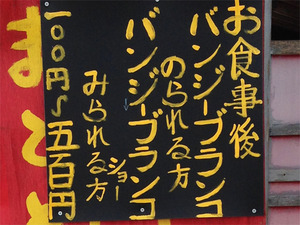 お食事後
バンジーブランコ
のられる方
バンジーブランコ
ショー
みられる方
一〇〇円〜五百円